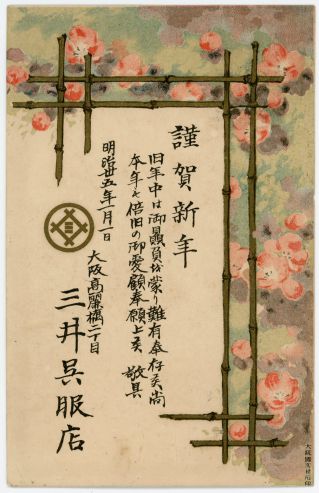 謹賀新年
旧年中は御贔負を蒙り難有奉存候尚
本年も倍旧の御愛顧奉願上候 敬具
明治卅五年一月一日
大阪高麗橋二丁目
三井呉服店